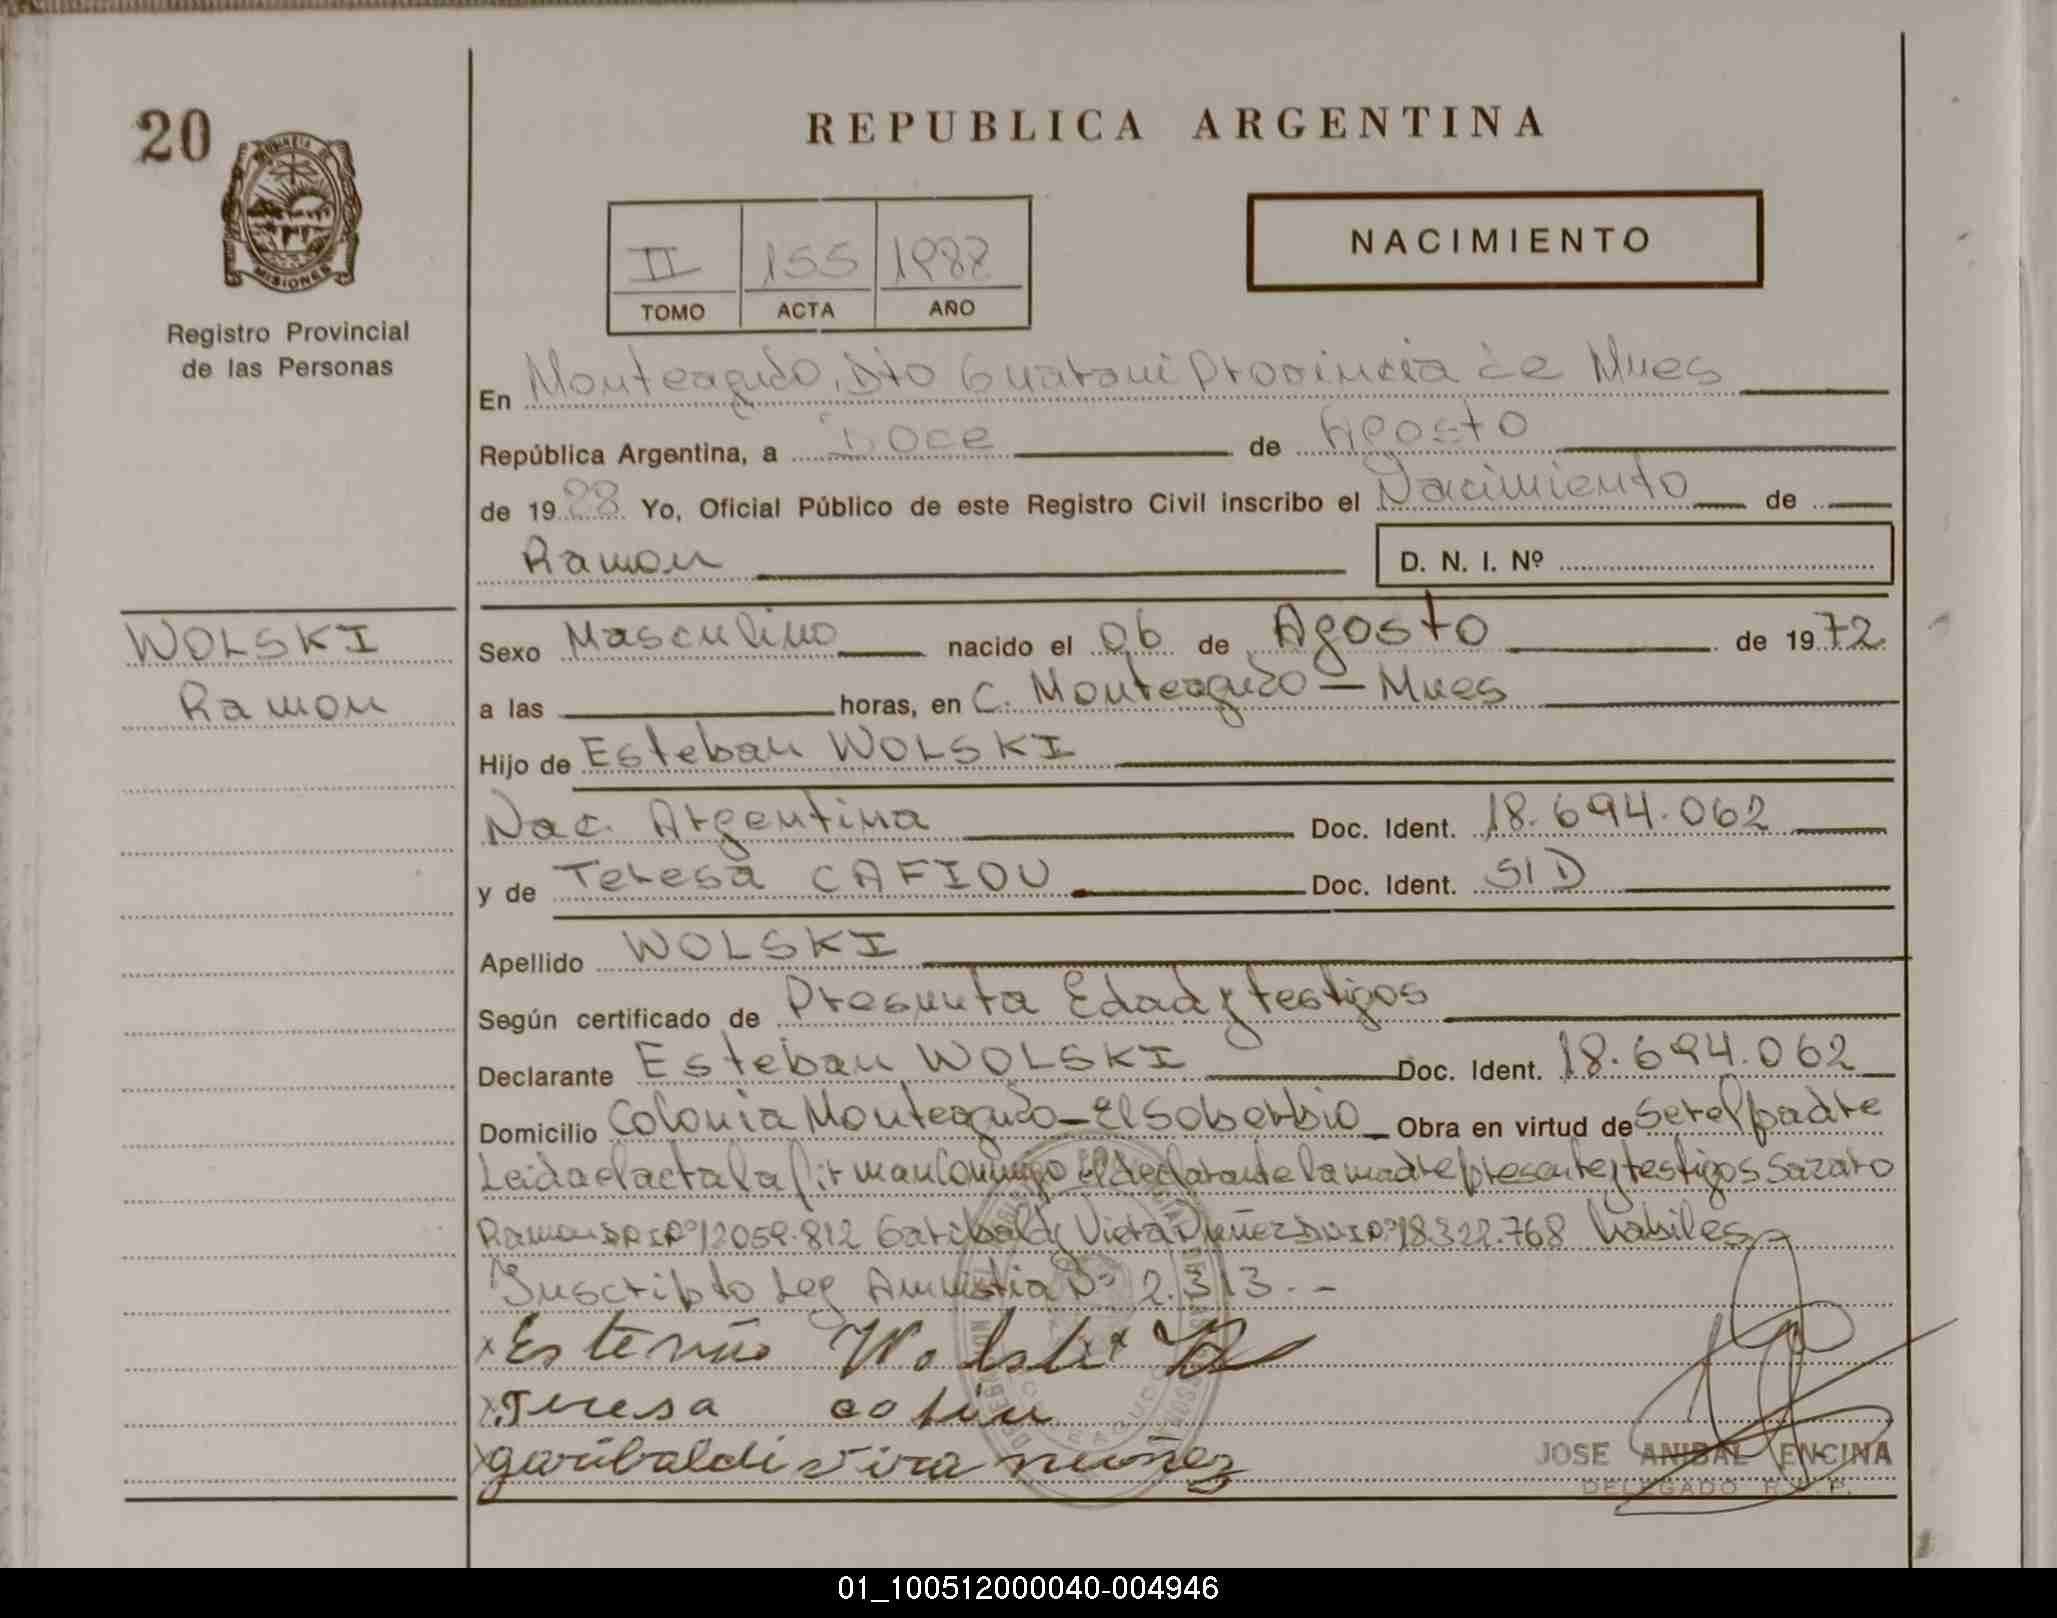 20
REPUBLICA ARGENTINA
PROVINCIA DE
MISIONES
Registro Provincial
de las Personas
II 155 1988
TOMO ACTA AÑO
NACIMIENTO
En Monteagudo, Dto Guarani Provincia de Mnes
República Argentina, a Doce de Agosto
de 1988 Yo, Oficial Público de este Registro Civil inscribo el Nacimiento de
Ramon D. N. I. Nº
WOLSKI
Ramon
Sexo Masculino nacido el 06 de Agosto de 1972
a las horas, en C. Monteagudo - Mnes
Hijo de Esteban WOLSKI
Nac. Argentina Doc. Ident. 18.694.062
y de Teresa CAFIOU Doc. Ident. S/D
Apellido WOLSKI
Según certificado de Presunta Edad y testigos
Declarante Esteban WOLSKI Doc. Ident. 18.694.062
Domicilio Colonia Monteagudo - El Soberbio Obra en virtud de Ser el padre
Leida el acta la firman Conmigo el declarante la madre presente y testigos Sazaro
Ramon DNI Nº 12059.812 Garibaldi Viera Nuñez DNI Nº 18322.768 habiles
Inscripto Ley Amnistia Nº 2.313.-
x Estevão Wolski x
x Teresa
x garibaldi vira nuñez
JOSE ANIBAL ENCINA
DELEGADO R. P. P.
01_100512000040-004946